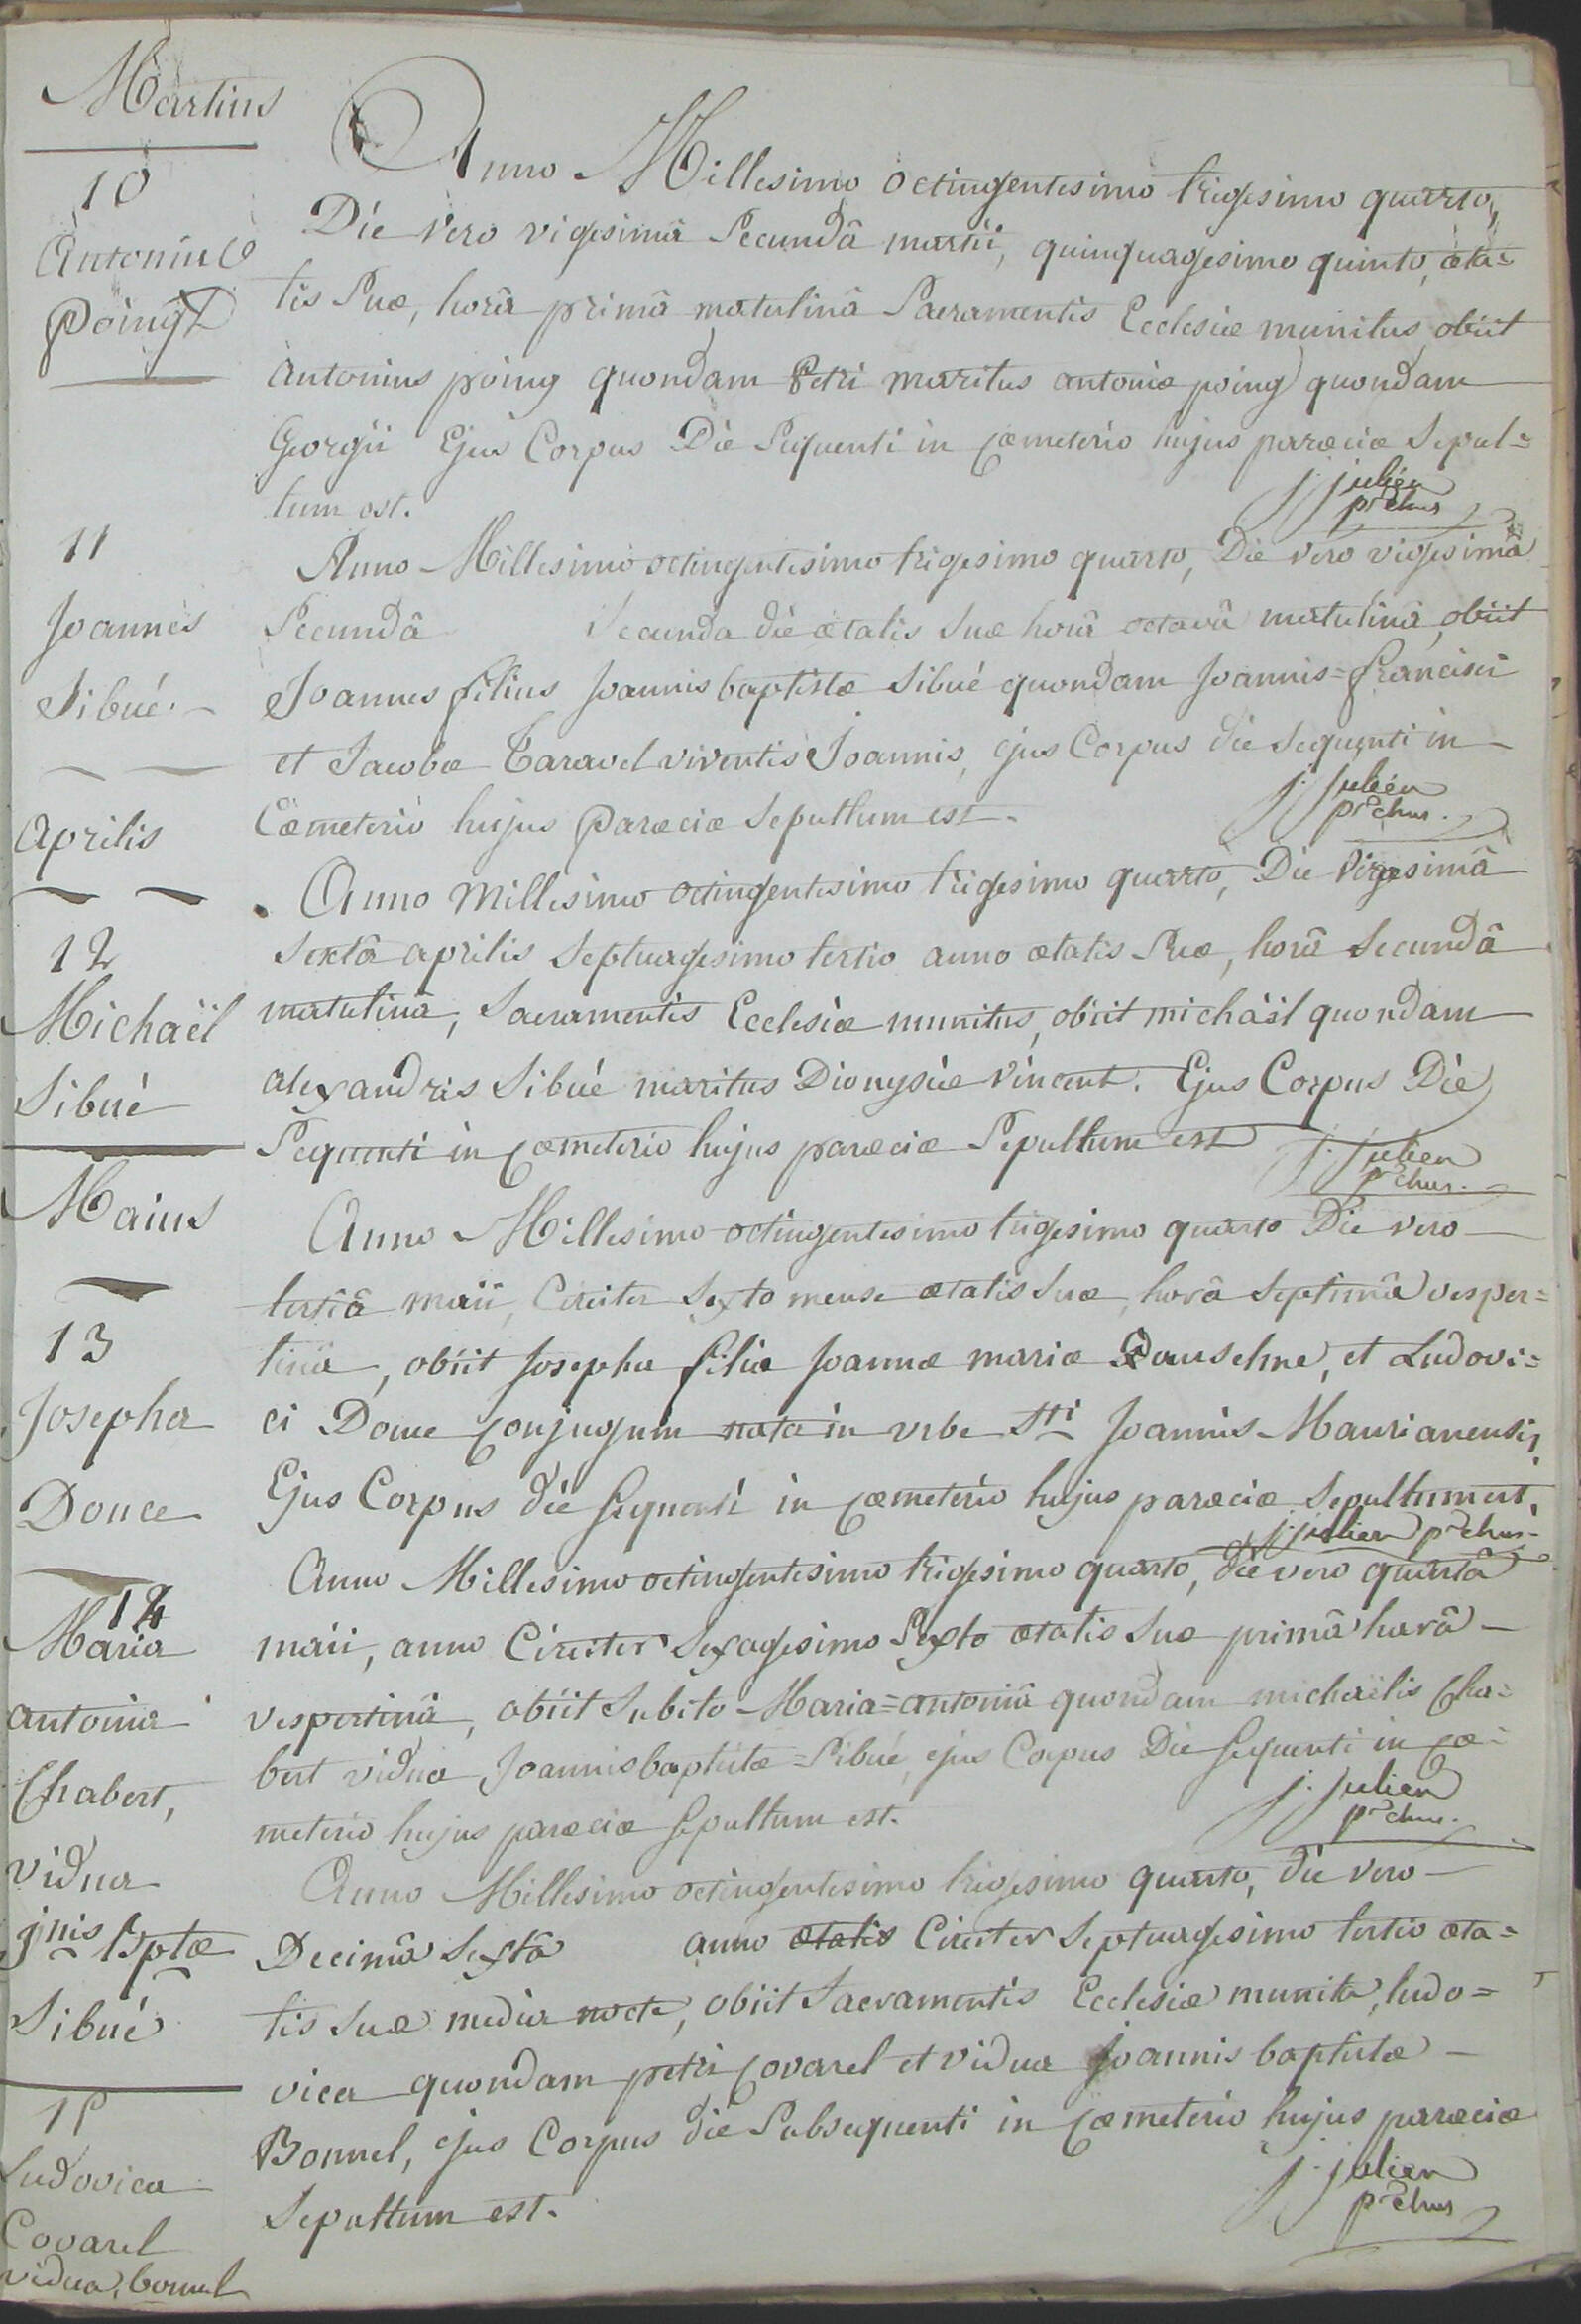 Martius
10
Antonius
Poingt
Anno Millesimo octingentesimo trigesimo quarto,
Die vero vigesimâ Secundâ martii, quinquagesimo quinto, æta=
tis Suæ, horâ primâ matutinâ Sacramentis Ecclesiæ munitus, obiit
antonius poing quondam Petri maritus antoniæ poing quondam
Georgii Ejus Corpus Die Sequenti in Cœmeterio hujus parœciæ Sepul=
tum est.
j. julien
prchus
11
Joannes
Sibué.
Anno Millesimo octingentesimo trigesimo quarto, Die vero vigesimâ
Secundâ Secunda die ætatis Suæ horâ octavâ matutinâ, obiit
Joannes filius Joannis baptistæ Sibué quondam Joannis=francisci
et Jacobæ Taravel viventis Joannis, ejus Corpus die Sequenti in
Cœmeterio hujus Parœciæ Sepultum est.
j. Julien
prchus.
Aprilis
12
Michaël
Sibué
Anno Millesimo octingentesimo trigesimo quarto, Die Vigesimâ
Sextâ aprilis Septuagesimo tertio anno ætatis Suæ, horâ Secundâ
matutinâ, Sacramentis Ecclesiæ munitus, obiit michaël quondam
alexandris Sibué maritus Dionysiæ Vincent. Ejus Corpus Die
Sequenti in Cœmeterio hujus parœciæ Sepultum est
j. Julien
prchus.
Maius
13
Josepha
Douce
Anno Millesimo octingentesimo trigesimo quarto Die vero
tertiâ maii, Circiter Sexto mense ætatis Suæ, horâ Septimâ vesper=
tinâ, obiit Josepha filia Joannæ mariæ et Ludovi=
ci Douce Conjugum nata in urbe Sti Joannis Maurianensis,
Ejus Corpus die Sequenti in Cœmeterio hujus parœciæ Sepultum est,
j. julien prchus.
14
Maria
antonia
Chabert,
vidua
jnis Bptæ
Sibué
Anno Millesimo octingentesimo trigesimo quarto, die vero quartâ
maii, anno Circiter Sexagesimo Sexto ætatis Suæ primâ horâ
vespertinâ, obiit Subito Maria=antonia quondam michaëlis Cha=
bert vidua Joannis baptistæ=Sibué, ejus Corpus Die Sequenti in Cœ=
meterio hujus parœciæ Sepultum est.
j. Julien
prchus.
15
Ludovica
Covarel
vidua, bonnel
Anno Millesimo octingentesimo trigesimo quarto, die vero
Decimâ Sextâ anno ætatis Circiter Septuagesimo tertio æta=
tis Suæ mediâ nocte, obiit Sacramentis Ecclesiæ munita, ludo=
vica quondam petri Covarel et Vidua Joannis baptistæ
Bonnel, ejus Corpus die Subsequenti in Cœmeterio hujus parœciæ
Sepultum est.
j. julien
prchus